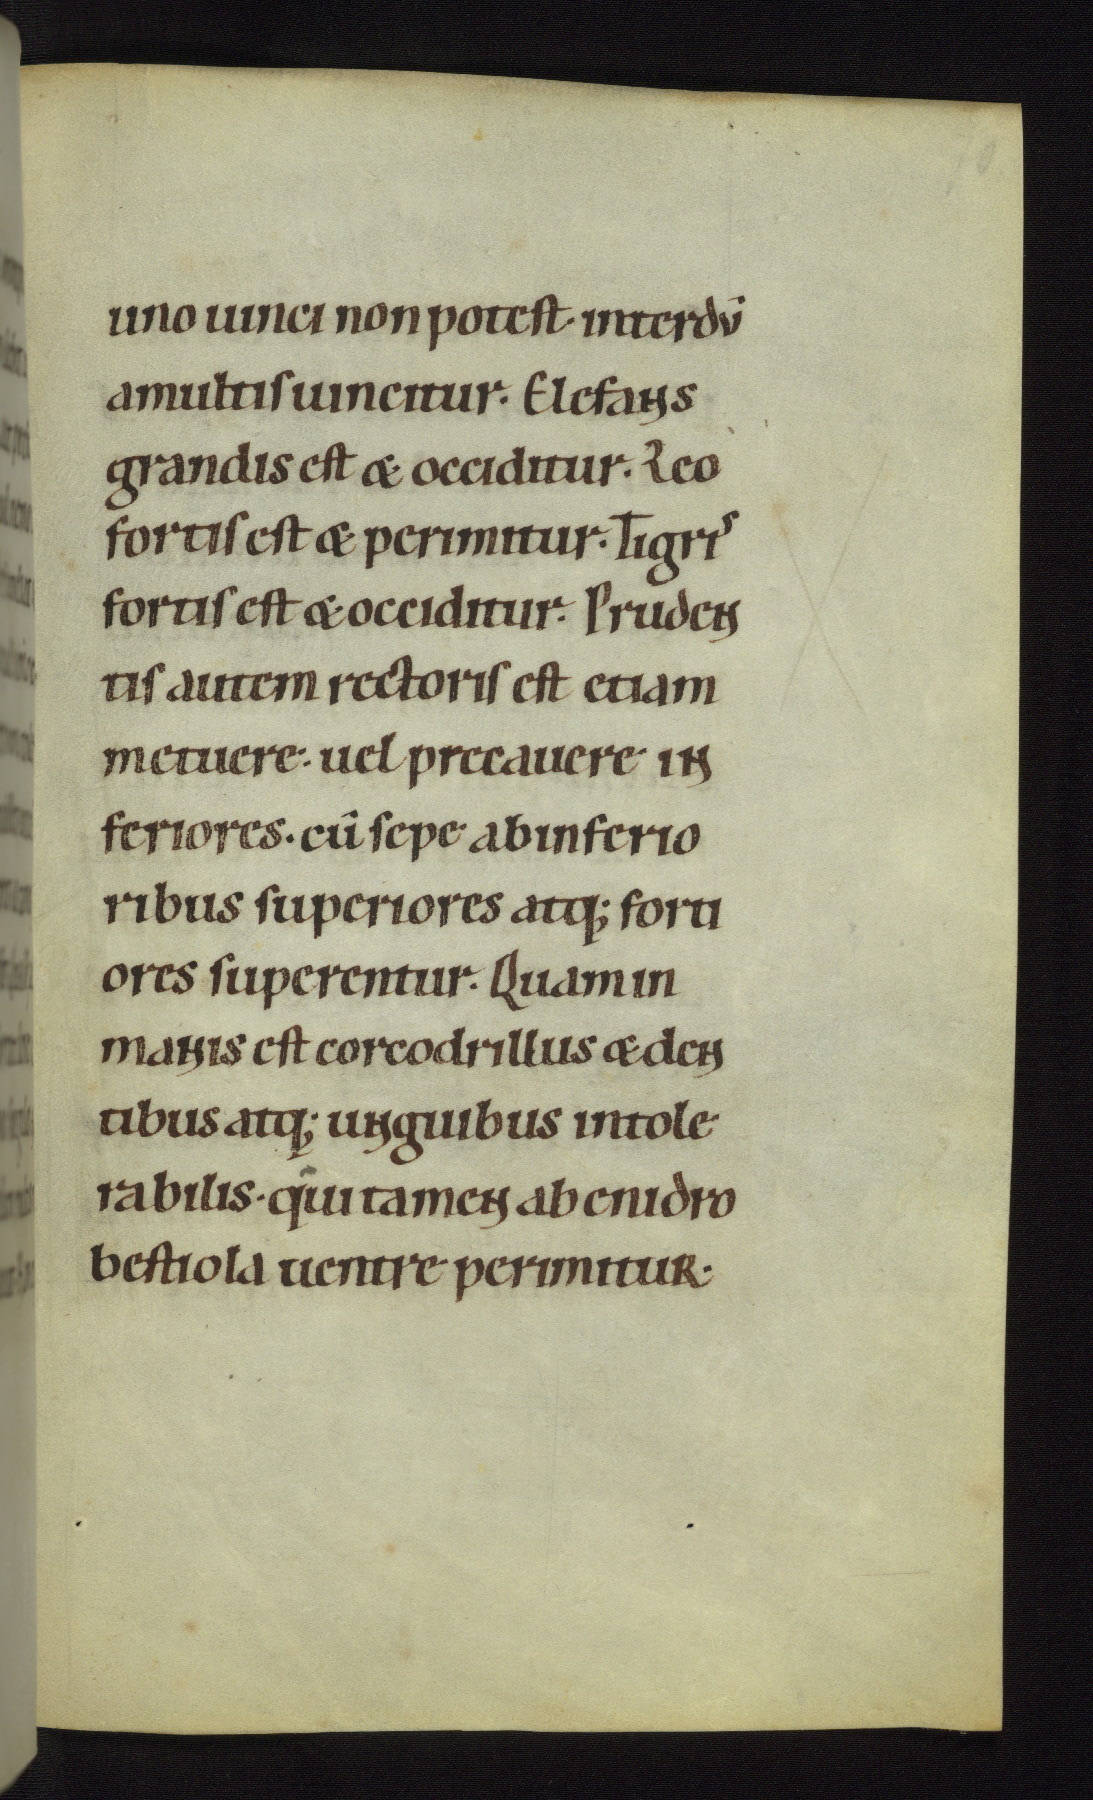 uno uinci non potest· interdū
amultis uincitur. Elefans
grandis est & occiditur. Leo
fortis est & perimitur. Tigris
fortis est & occiditur. Pruden
tis autem rectoris est etiam
metuere· uel precauere in
feriores. cū sepe ab inferio
ribus superiores atq; forti
ores superentur. Quam in
manis est corcodrillus & den
tibus atq; unguibus intole
rabilis· qui tamen ab enidro
bestiola uentre perimitur·